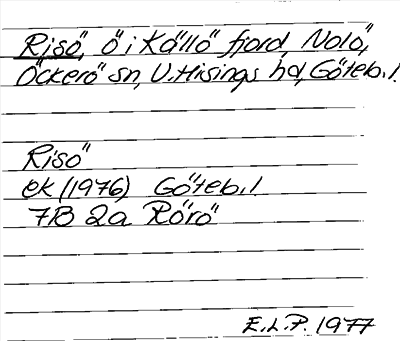 Risö, ö i Källö fjord, Nolö,
Öckerö sn, V. Hisings hd, Göteb. l.
Risö
ek (1976) Göteb. l.
7B 2a Rörö
E.L.P. 1977